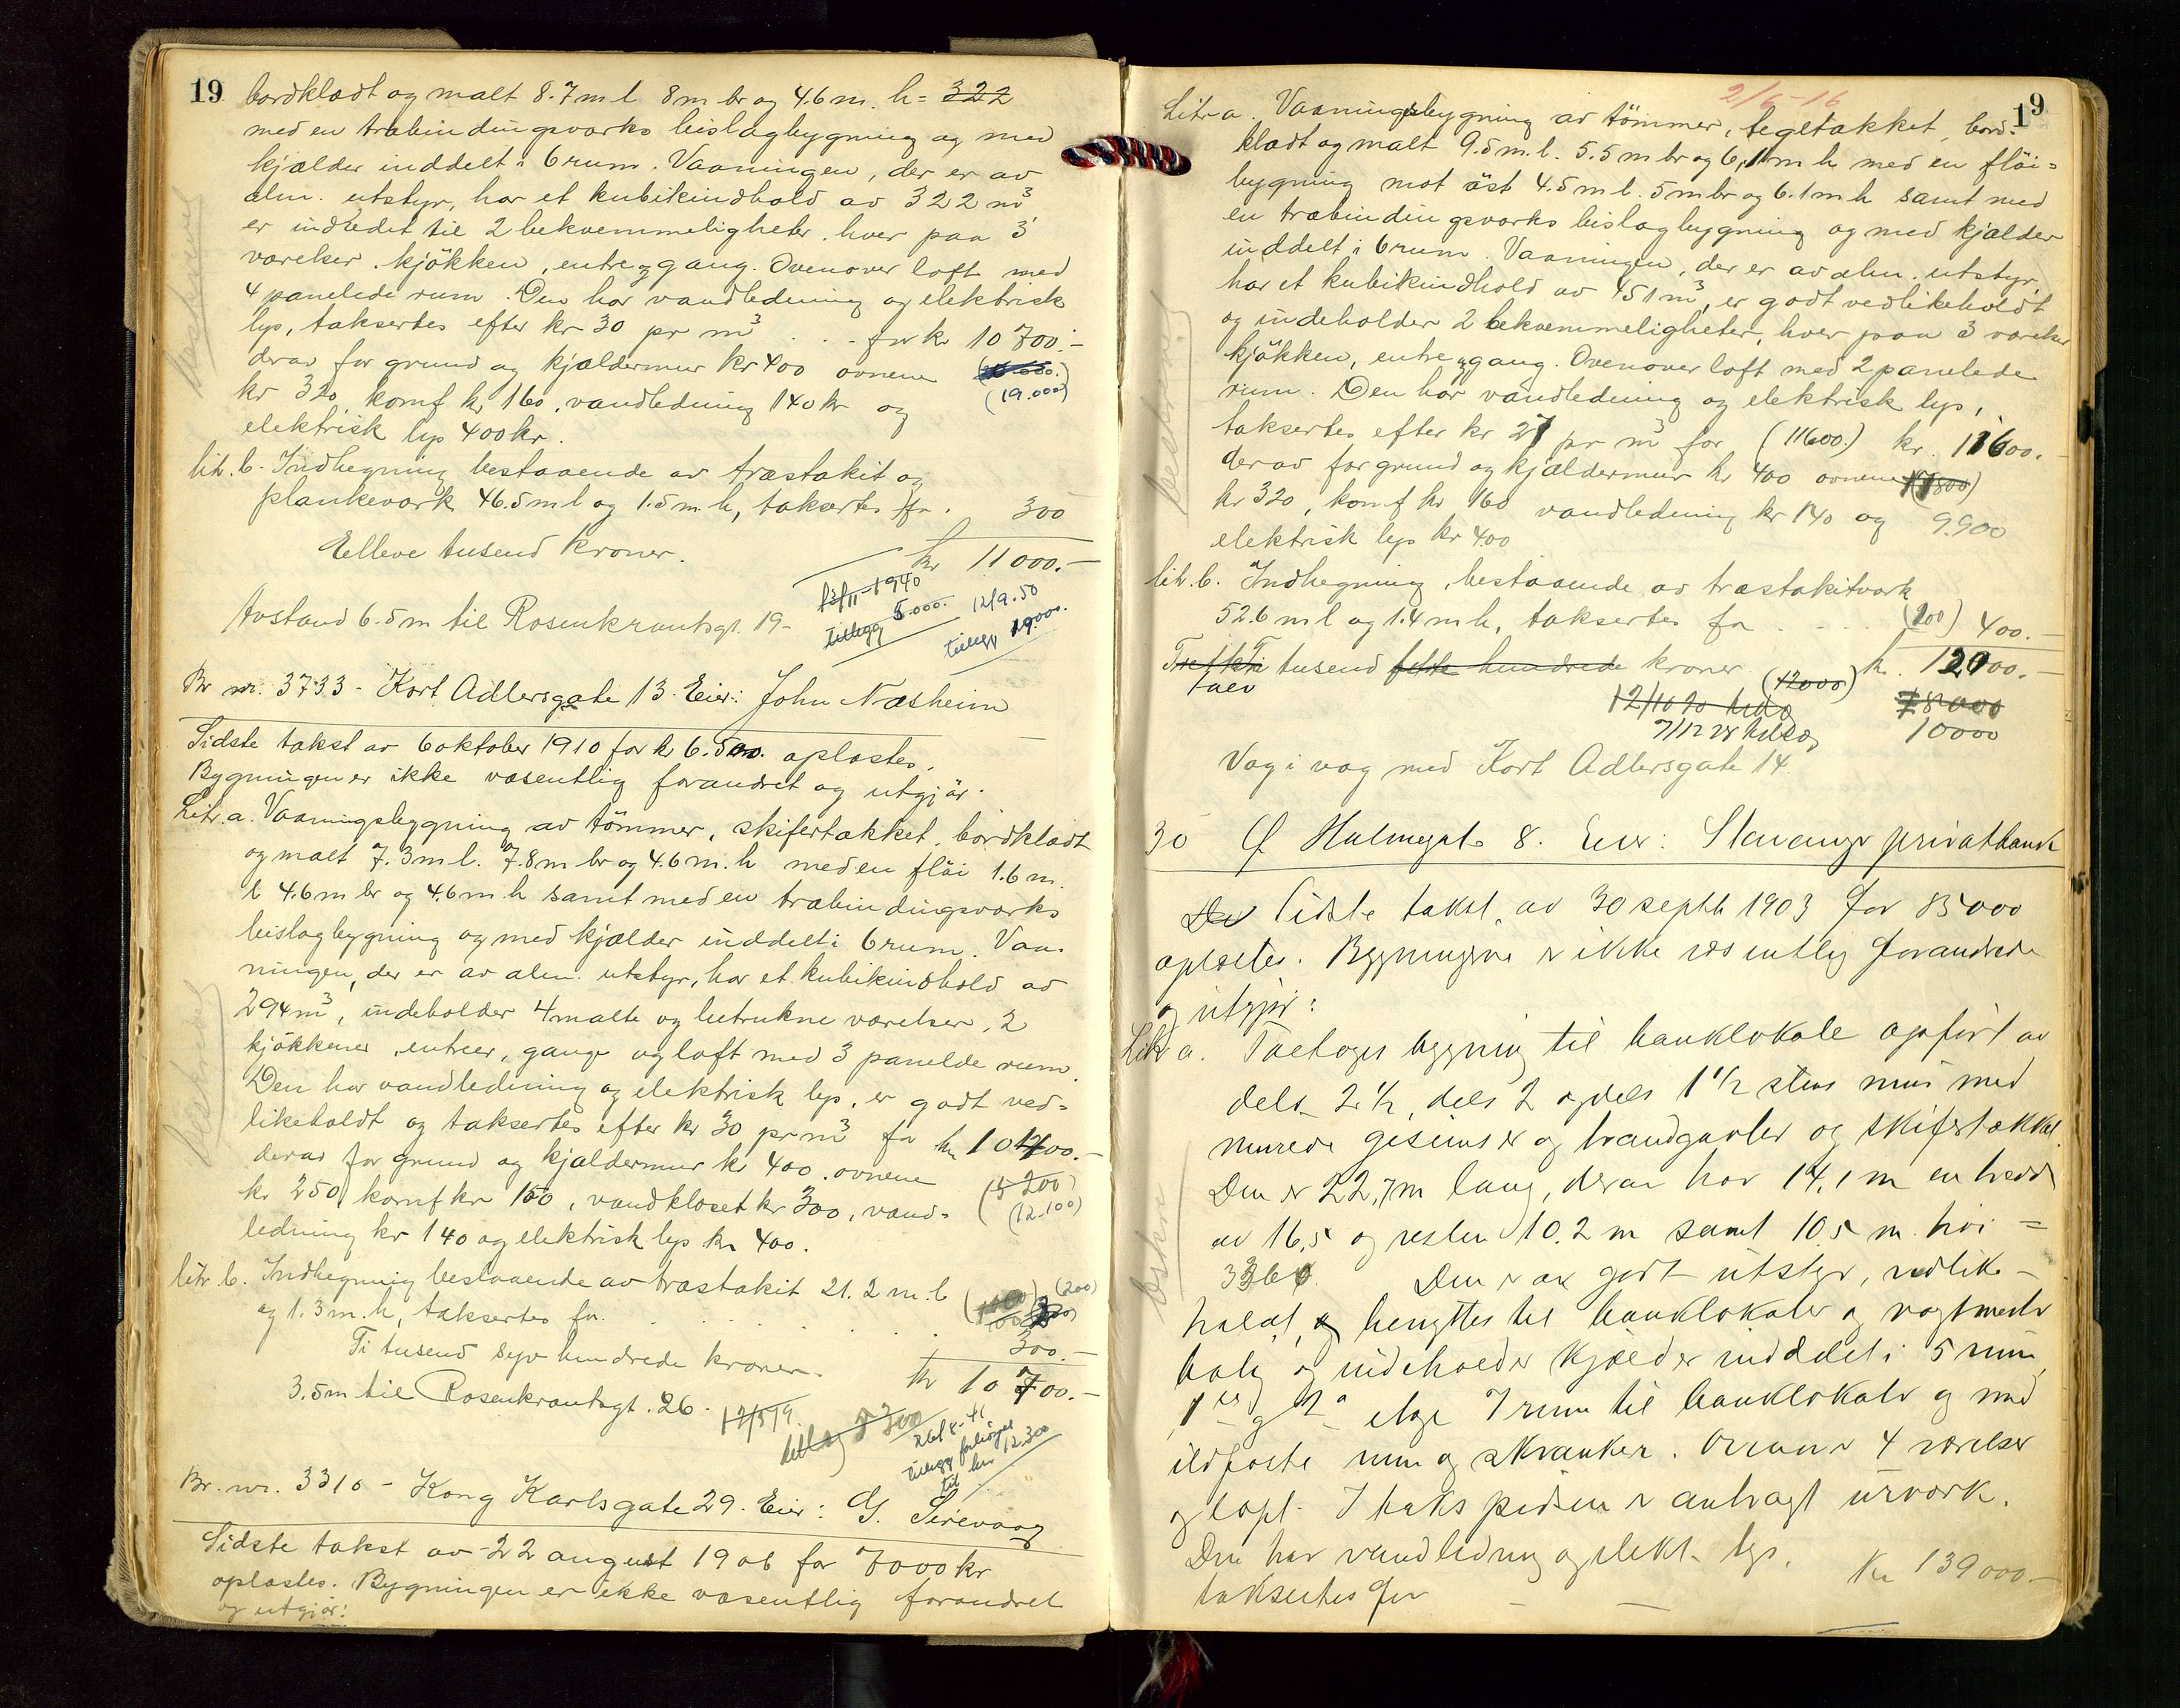 19
bordklædt og malt 8.7 m l 8 m br og 4.6 m. h = 322
med en træbindingsværks bislagbygning og med
kjælder inddelt i 6 rum. Vaaningen, der er av
alm. utstyr, har et kubikindhold av 322 m³
er indredet til 2 bekvemmeligheter, hver paa 3
værelser, kjökken, entre og gang. Ovenover loft med
4 panelede rum. Den har vandledning og elektrisk
lys, taksertes efter kr 30 pr m³ . . - for kr 10700.-
derav for grund og kjældermur kr 400 ovnene
(19.000)
kr 320, komf kr 160, vandledning 140 kr og
elektrisk lys 400 kr.
litr. b. Indhegning bestaaende av træstakit og
plankeværk 46.5 m l og 1.5 m. h, taksertes for . 300
Elleve tusend kroner. kr 11000.-
13/11-1940
tillegg 5.000.
12/9.50
tillegg 19000.
Avstand 6.5 m til Rosenkrantsgt. 19-
Br nr. 3733 - Kort Adlersgate 13. Eier: John Næsheim
Sidste takst av 6 oktober 1910 for kr 6.500. oplæstes.
Bygningen er ikke væsentlig forandret og utgjör.
Litr. a. Vaaningsbygning av tömmer, skifertækket, bordklædt
og malt 7.3 m l. 7.8 m br og 4.6 m. h med en flöi 1.6 m.
l 4.6 m br og 4.6 m h samt med en træbindingsværks
bislagbygning og med kjælder inddelt i 6 rum. Vaa-
ningen, der er av alm. utstyr, har et kubikindhold av
294 m³, indeholder 4 malte og betrukne værelser, 2
kjökkener, entreer, gange og loft med 3 panelde rum.
Den har vandledning og elektrisk lys, er godt ved-
likeholdt og taksertes efter kr 30 pr m³ for kr 10400.-
derav for grund og kjældermur kr 400, ovnene
(5200)
kr 250, komf kr 160, vandkloset kr 300, vand-
(12.100)
ledning kr 140 og elektrisk lys kr 400.
litr b. Indhegning bestaaende av træstakit 21.2 m. l
(200)
og 1.3 m. h, taksertes for . . . . . . 300.-
Ti tusend syv hundrede kroner. kr 10700.-
3.5 m til Rosenkrantsgt. 26.
12/5 19.
tillæg 5300
26/8-41
tillegg forhöyet
til kr 12.300
Br. nr. 3316 - Kong Karlsgate 29. Eier: G. Sirevaag
Sidste takst av 22 august 1906 for 7000 kr
oplæstes. Bygningen er ikke væsentlig forandret
og utgjör:
2/6-16
19
Litr a. Vaaningsbygning av tömmer, tegltækket, bord-
klædt og malt 9.5 m. l. 5.5 m br og 6,1 m h med en flöi=
bygning mot öst 4.5 m l. 5 m br og 6.1 m h samt med
en træbindingsværks bislagbygning og med kjælder
inddelt i 6 rum. Vaaningen, der er av alm. utstyr,
har et kubikindhold av 451 m³, er godt vedlikeholdt
og indeholder 2 bekvemmeligheter, hver paa 3 værelser
kjökken, entre og gang. Ovenover loft med 2 panelede
rum. Den har vandledning og elektrisk lys,
taksertes efter kr 27 pr m³ for (11600.) kr. 11600.-
derav for grund og kjældermur kr 400 ovnene
kr 320, komf kr 160 vandledning kr 140 og 9.900
elektrisk lys kr 400
litr. b. Indhegning, bestaaende av træstakitværk
52.6 m l og 1.4 m h, taksertes for . . . . (200) 400.-
tusend hundrede kroner (12000) kr. 12000.-
tolv
18000
7/12 28 10000
Væg i væg med Kort Adlersgate 14.
30 Ö Holmegate 8. Eier: Stavanger privatbank
Sidste takst av 30 septb 1903 for 85000
oplæstes. Bygningerne er ikke væsentlig forandrede
og utgjör:
Litr a. Toetages bygning til banklokale opfört av
dels 2 1/2, dels 2 og dels 1 1/2 stens mur med
murede gesimser og brandgavler og skifertækket.
Den er 22,7 m lang, derav har 14,1 m en bredde
av 16,5 og resten 10.2 m samt 10,5 m. höi =
Den er av godt utstyr, vedlike-
holdt, benyttes til banklokaler og vagtmester
bolig og indeholder kjælder inddelt i 5 rum,
1ste og 2den etage 7 rum til banklokale og med
ildfaste rum og skranker. Ovenover 4 værelser
og loft. I takspidsen er anbragt urværk.
Den har vandledning og elekt. lys.
taksertes for - - Kr 139000.-